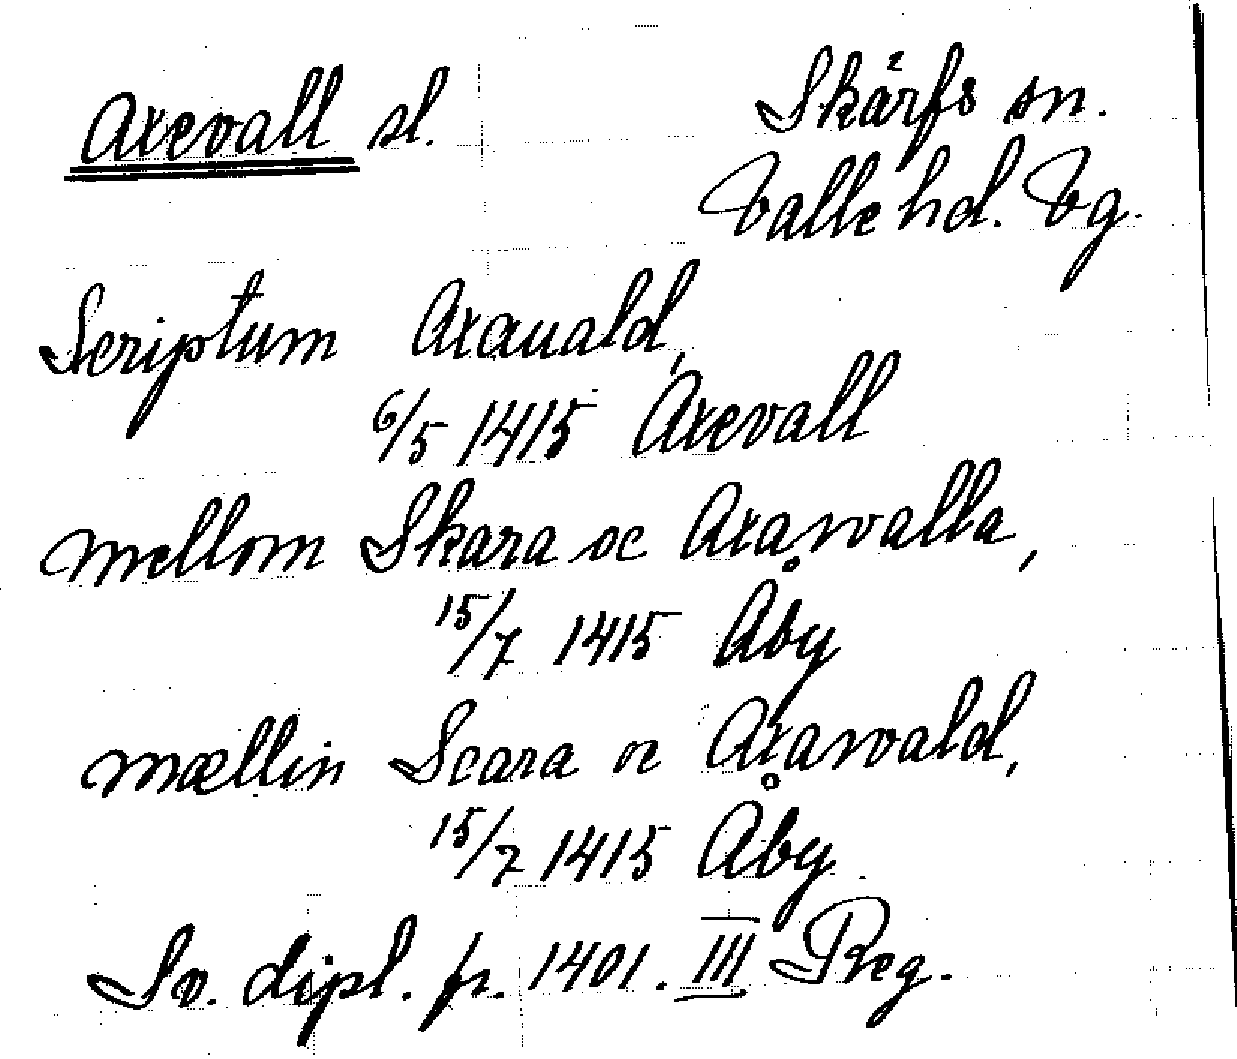 Axevall sl. Skärfs sn.
Valle hd. Vg.
Scriptum Axauald,
6/5 1415 Axevall
mellom Skara oc Axawalla,
15/7 1415 Åby
mællin Scara oc Axawald,
15/7 1415 Åby
Sv. dipl. fr. 1401. III Reg.